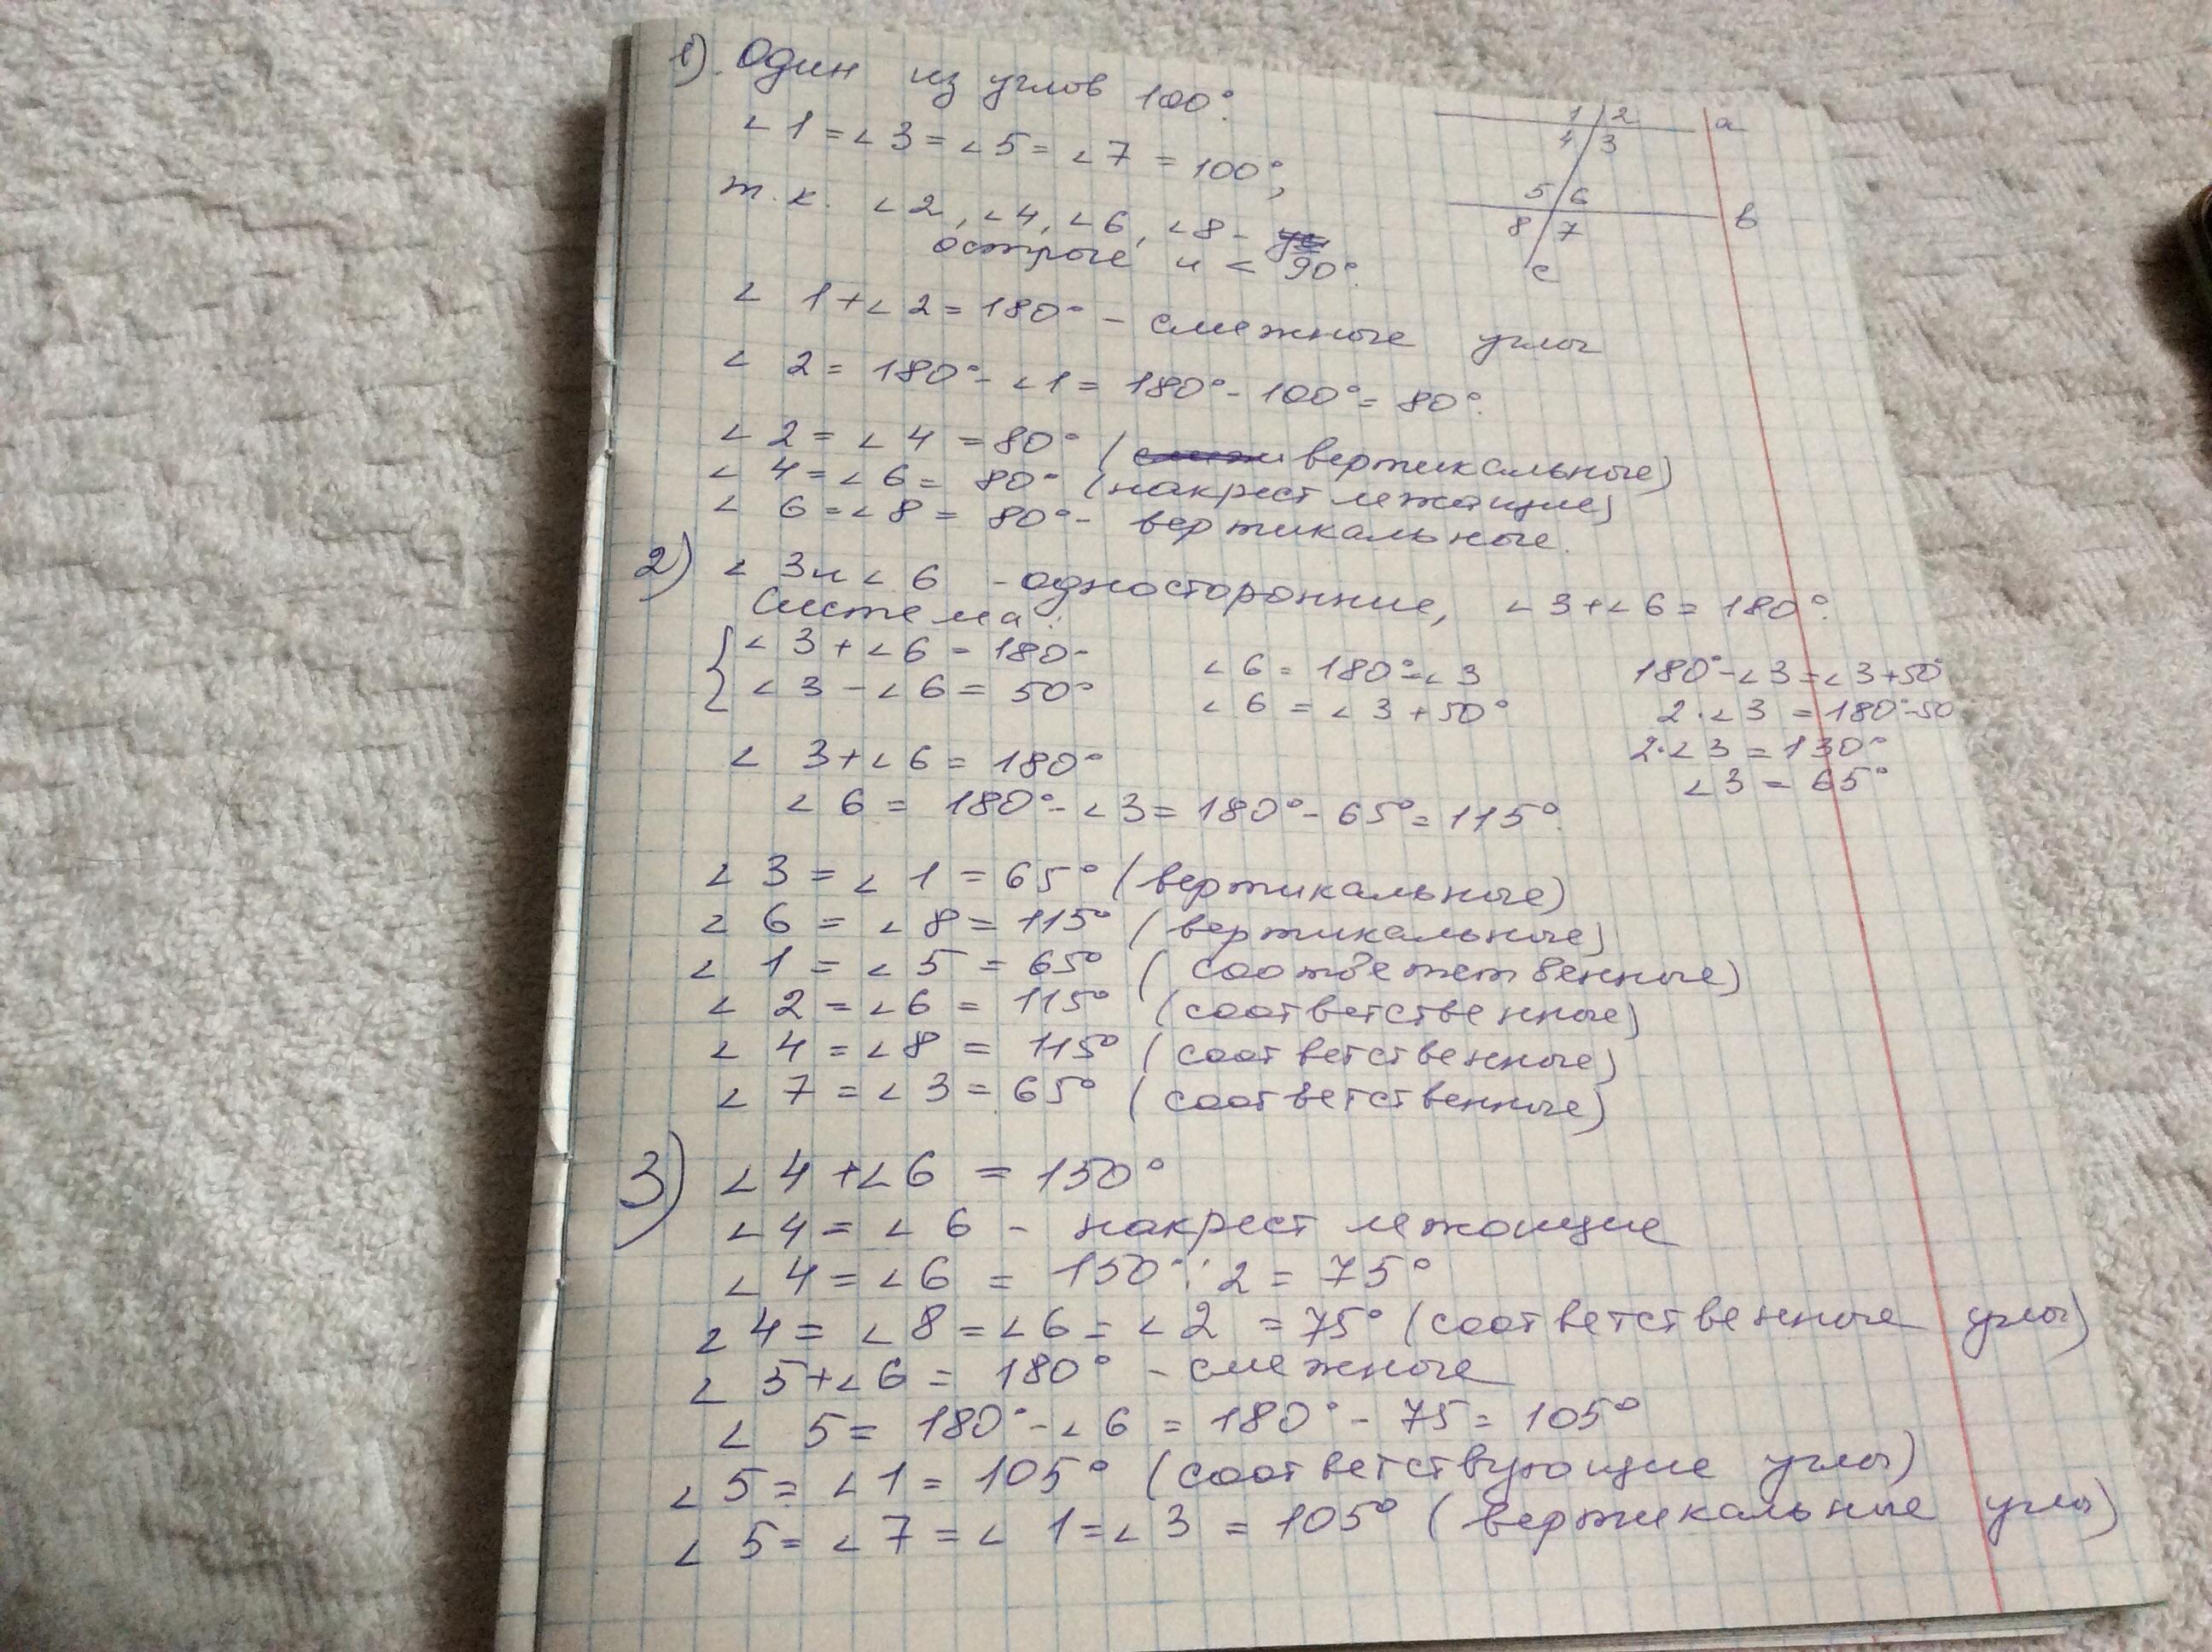 1). Один из углов 100°.
∠1 = ∠3 = ∠5 = ∠7 = 100°,
т.к. ∠2, ∠4, ∠6, ∠8 -
острые и < 90°.
∠1 + ∠2 = 180° - смежные углы
∠2 = 180° - ∠1 = 180° - 100° = 80°.
∠2 = ∠4 = 80° (вертикальные)
∠4 = ∠6 = 80° (накрест лежащие)
∠6 = ∠8 = 80° - вертикальные.
1 2 a
4 3
5 6
b
8 7
c
2) ∠3 и ∠6 - односторонние, ∠3 + ∠6 = 180°.
Система:
∠3 + ∠6 = 180°
∠3 - ∠6 = 50°
∠6 = 180° - ∠3
∠6 = ∠3 + 50°
180° - ∠3 = ∠3 + 50°
2·∠3 = 180° - 50
2·∠3 = 130°
∠3 = 65°
∠3 + ∠6 = 180°
∠6 = 180° - ∠3 = 180° - 65° = 115°.
∠3 = ∠1 = 65° (вертикальные)
∠6 = ∠8 = 115° (вертикальные)
∠1 = ∠5 = 65° (соответственные)
∠2 = ∠6 = 115° (соответственные)
∠4 = ∠8 = 115° (соответственные)
∠7 = ∠3 = 65° (соответственные)
3) ∠4 + ∠6 = 150°
∠4 = ∠6 - накрест лежащие
∠4 = ∠6 = 150° : 2 = 75°
∠4 = ∠8 = ∠6 = ∠2 = 75° (соответственные углы)
∠5 + ∠6 = 180° - смежные
∠5 = 180° - ∠6 = 180° - 75 = 105°
∠5 = ∠1 = 105° (соответствующие углы)
∠5 = ∠7 = ∠1 = ∠3 = 105° (вертикальные углы)